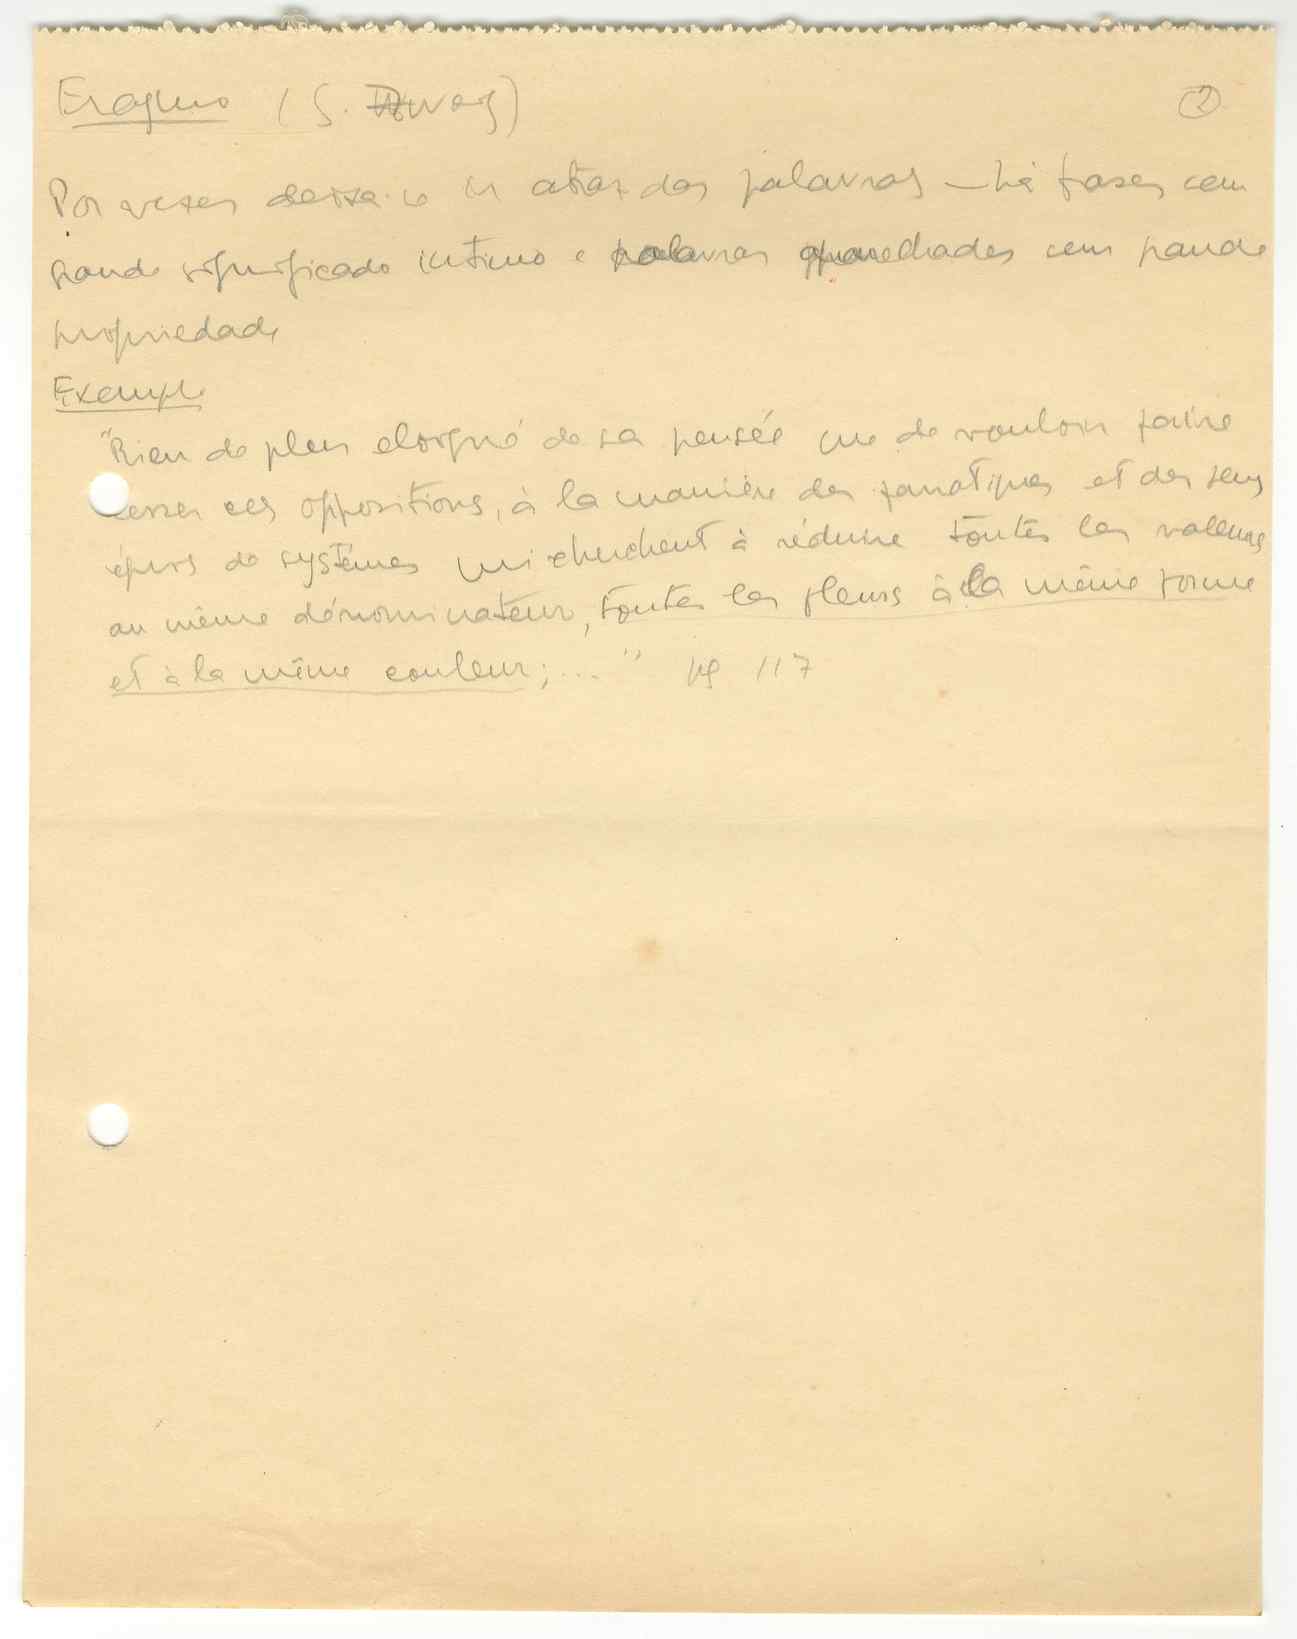 Erasmo (S. Zweig) ②
Por vezes deixa-se ir atrás das palavras – há frases com
grande significado íntimo e palavras apanhadas com grande
propriedade
Exemplo
"Rien de plus éloigné de sa pensée que de vouloir faire
cesser ces oppositions, à la manière des fanatiques et des gens
épris de systèmes qui cherchent à réduire toutes les valeurs
au même dénominateur, toutes les fleurs à la même forme
et à la même couleur; ..." pg 117